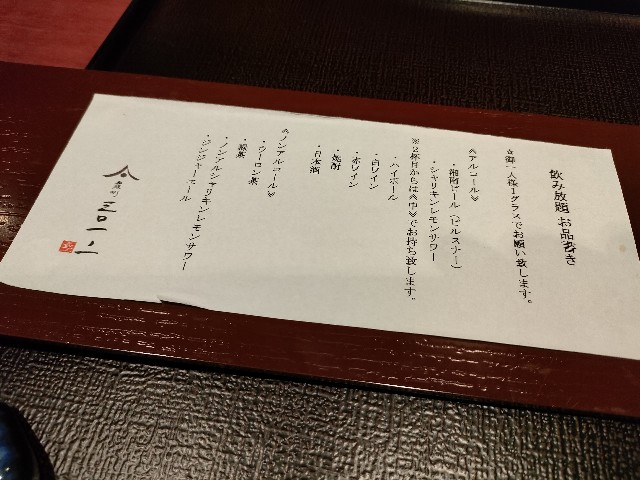 飲み放題 お品書き
☆御一人様1グラスでお願い致します。
≪アルコール≫
・湘南ビール（ピルスナー）
・シャリキンレモンサワー
※2杯目からは≪中≫でお持ち致します。
・ハイボール
・白ワイン
・赤ワイン
・焼酎
・日本酒
≪ノンアルコール≫
・ウーロン茶
・緑茶
・ノンアルシャリキンレモンサワー
・ジンジャーエール